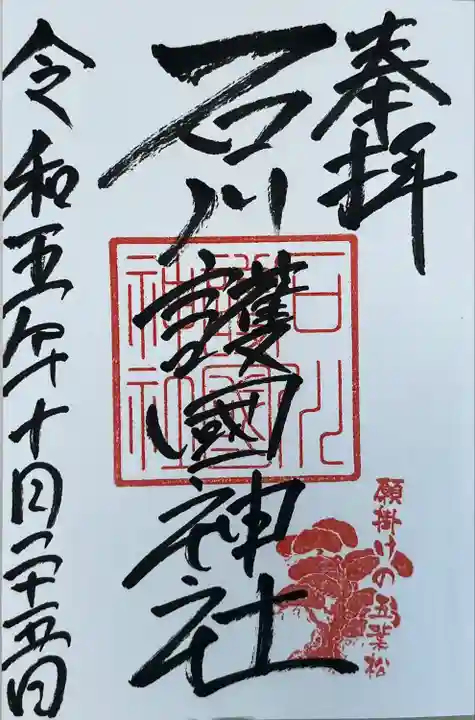 奉拝
石川護國神社
石川護國神社
願掛けの五葉松
令和五年十月二十五日